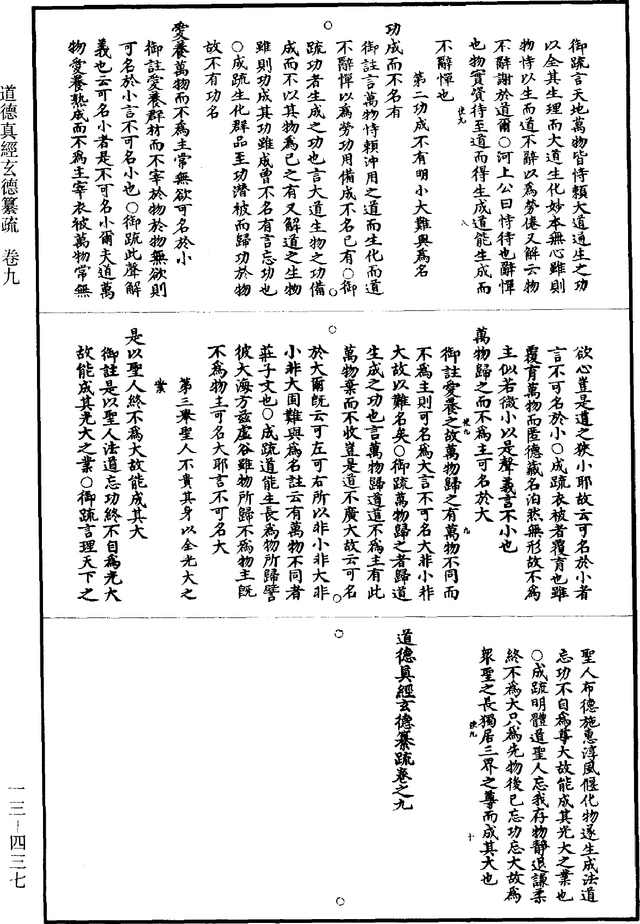 道德真經玄德纂疏　卷九
御疏言天地萬物皆恃賴大道通生之功
以全其生理而大道生化妙本無心雖則
物恃以生而道不辭以為勞倦又解云物
不辭謝於道爾○河上公曰恃待也辭憚
也物實資待至道而得生成道能生成而
不辭憚也
第二功成不有明小大難與為名
功成而不名有
御註言萬物恃賴沖用之道而生化而道
不辭憚以為勞功用備成不名已有○御
疏功者生成之功也言大道生物之功備
成而不以其物為已之有又解道之生物
雖則功成其功雖成曾不名有言忘功也
○成疏生化群品至功潛被而歸功於物
故不有功名
愛養萬物而不為主常無欲可名於小
御註愛養群材而不宰於物於物無欲則
可名於小言不可名小也○御疏此聲解
義也云可名小者是不可名小爾夫道萬
物愛養熟成而不為主宰衣被萬物常無
欲心豈是道之狹小耶故云可名於小者
言不可名於小○成疏衣被者覆育也雖
覆育萬物而匿德藏名泊然無形故不為
主似若微小以是聲義言不小也
萬物歸之而不為主可名於大
御註愛養之故萬物歸之有萬物不同而
不為主則可名為大言不可名大非小非
大故以難名矣○御疏萬物歸之者歸道
生成之功也言萬物歸道道不為主有此
萬物棄而不收豈是道不廣大故云可名
於大爾既云可左可右所以非小非大非
小非大固難與為名註云有萬物不同者
莊子文也○成疏道能生長為物所歸譬
彼大海方茲虛谷雖物所歸不為物主既
不為物主可名大耶言不可名大
第三舉聖人不貴其身以全光大之
業
是以聖人終不為大故能成其大
御註是以聖人法道忘功終不自為光大
故能成其光大之業○御疏言理天下之
聖人布德施惠淳風偃化物遂生成法道
忘功不自為尊大故能成其光大之業也
○成疏明體道聖人忘我存物靜退謙柔
終不為大只為先物後已忘功忘大故為
眾聖之長獨居三界之尊而成其大也
道德真經玄德纂疏卷之九
一三－四三七